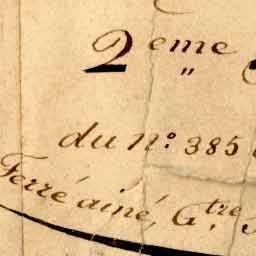 2eme
"
du n:o 385
Ferré ainé, G.tre